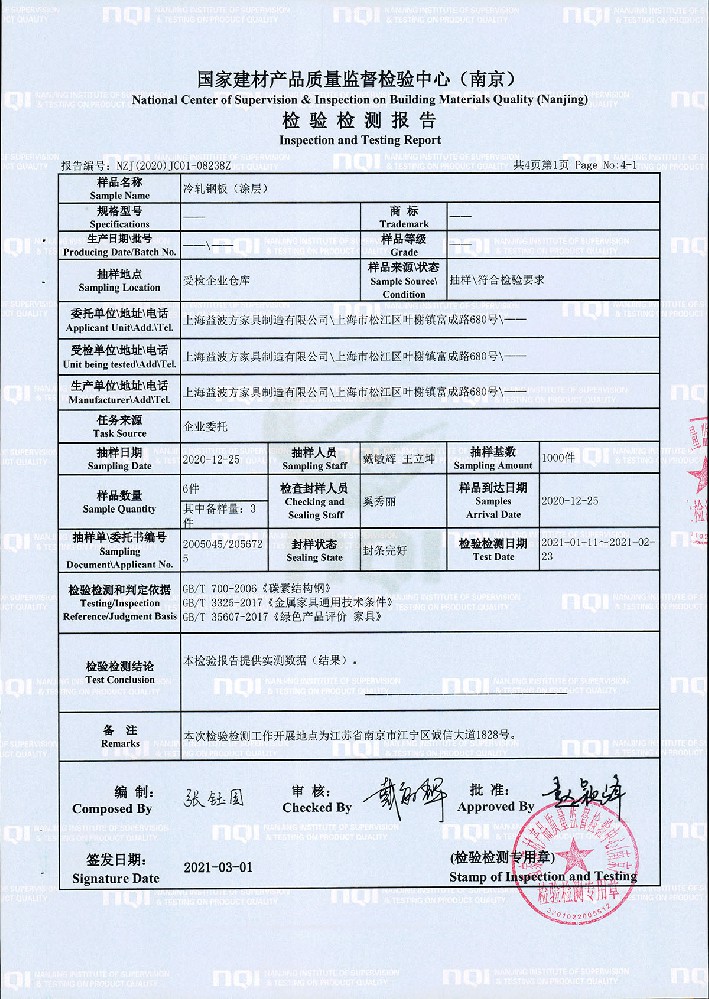 国家建材产品质量监督检验中心（南京）
National Center of Supervision & Inspection on Building Materials Quality (Nanjing)
检验检测报告
Inspection and Testing Report
报告编号：NZJ(2020)JC01-08238Z 共4页第1页 Page No:4-1
样品名称
Sample Name
冷轧钢板（涂层）
规格型号
Specifications
——
商 标
Trademark
——
生产日期\批号
Producing Date/Batch No.
——\——
样品等级
Grade
——
抽样地点
Sampling Location
受检企业仓库
样品来源\状态
Sample Source\
Condition
抽样\符合检验要求
委托单位\地址\电话
Applicant Unit\Add.\Tel.
上海益波方家具制造有限公司\上海市松江区叶榭镇富成路680号\——
受检单位\地址\电话
Unit being tested\Add\Tel.
上海益波方家具制造有限公司\上海市松江区叶榭镇富成路680号\——
生产单位\地址\电话
Manufacturer\Add\Tel.
上海益波方家具制造有限公司\上海市松江区叶榭镇富成路680号\——
任务来源
Task Source
企业委托
抽样日期
Sampling Date
2020-12-25
抽样人员
Sampling Staff
戴敏辉 王立坤
抽样基数
Sampling Amount
1000件
样品数量
Sample Quantity
6件
其中备样量：3
件
检查封样人员
Checking and
Sealing Staff
奚秀丽
样品到达日期
Samples
Arrival Date
2020-12-25
抽样单\委托书编号
Sampling
Document\Applicant No.
2005045/205672
5
封样状态
Sealing State
封条完好
检验检测日期
Test Date
2021-01-11~2021-02-
23
检验检测和判定依据
Testing/Inspection
Reference/Judgment Basis
GB/T 700-2006《碳素结构钢》
GB/T 3325-2017《金属家具通用技术条件》
GB/T 35607-2017《绿色产品评价 家具》
检验检测结论
Test Conclusion
本检验报告提供实测数据（结果）。
备 注
Remarks
本次检验检测工作开展地点为江苏省南京市江宁区诚信大道1828号。
编 制：
Composed By
张钰国
审 核：
Checked By
戴敏辉
批 准：
Approved By
签发日期：
Signature Date
2021-03-01
(检验检测专用章)
Stamp of Inspection and Testing
国家建材产品质量监督检验中心(南京)
检验检测专用章
nqi NANJING INSTITUTE OF SUPERVISION
& TESTING ON PRODUCT QUALITY